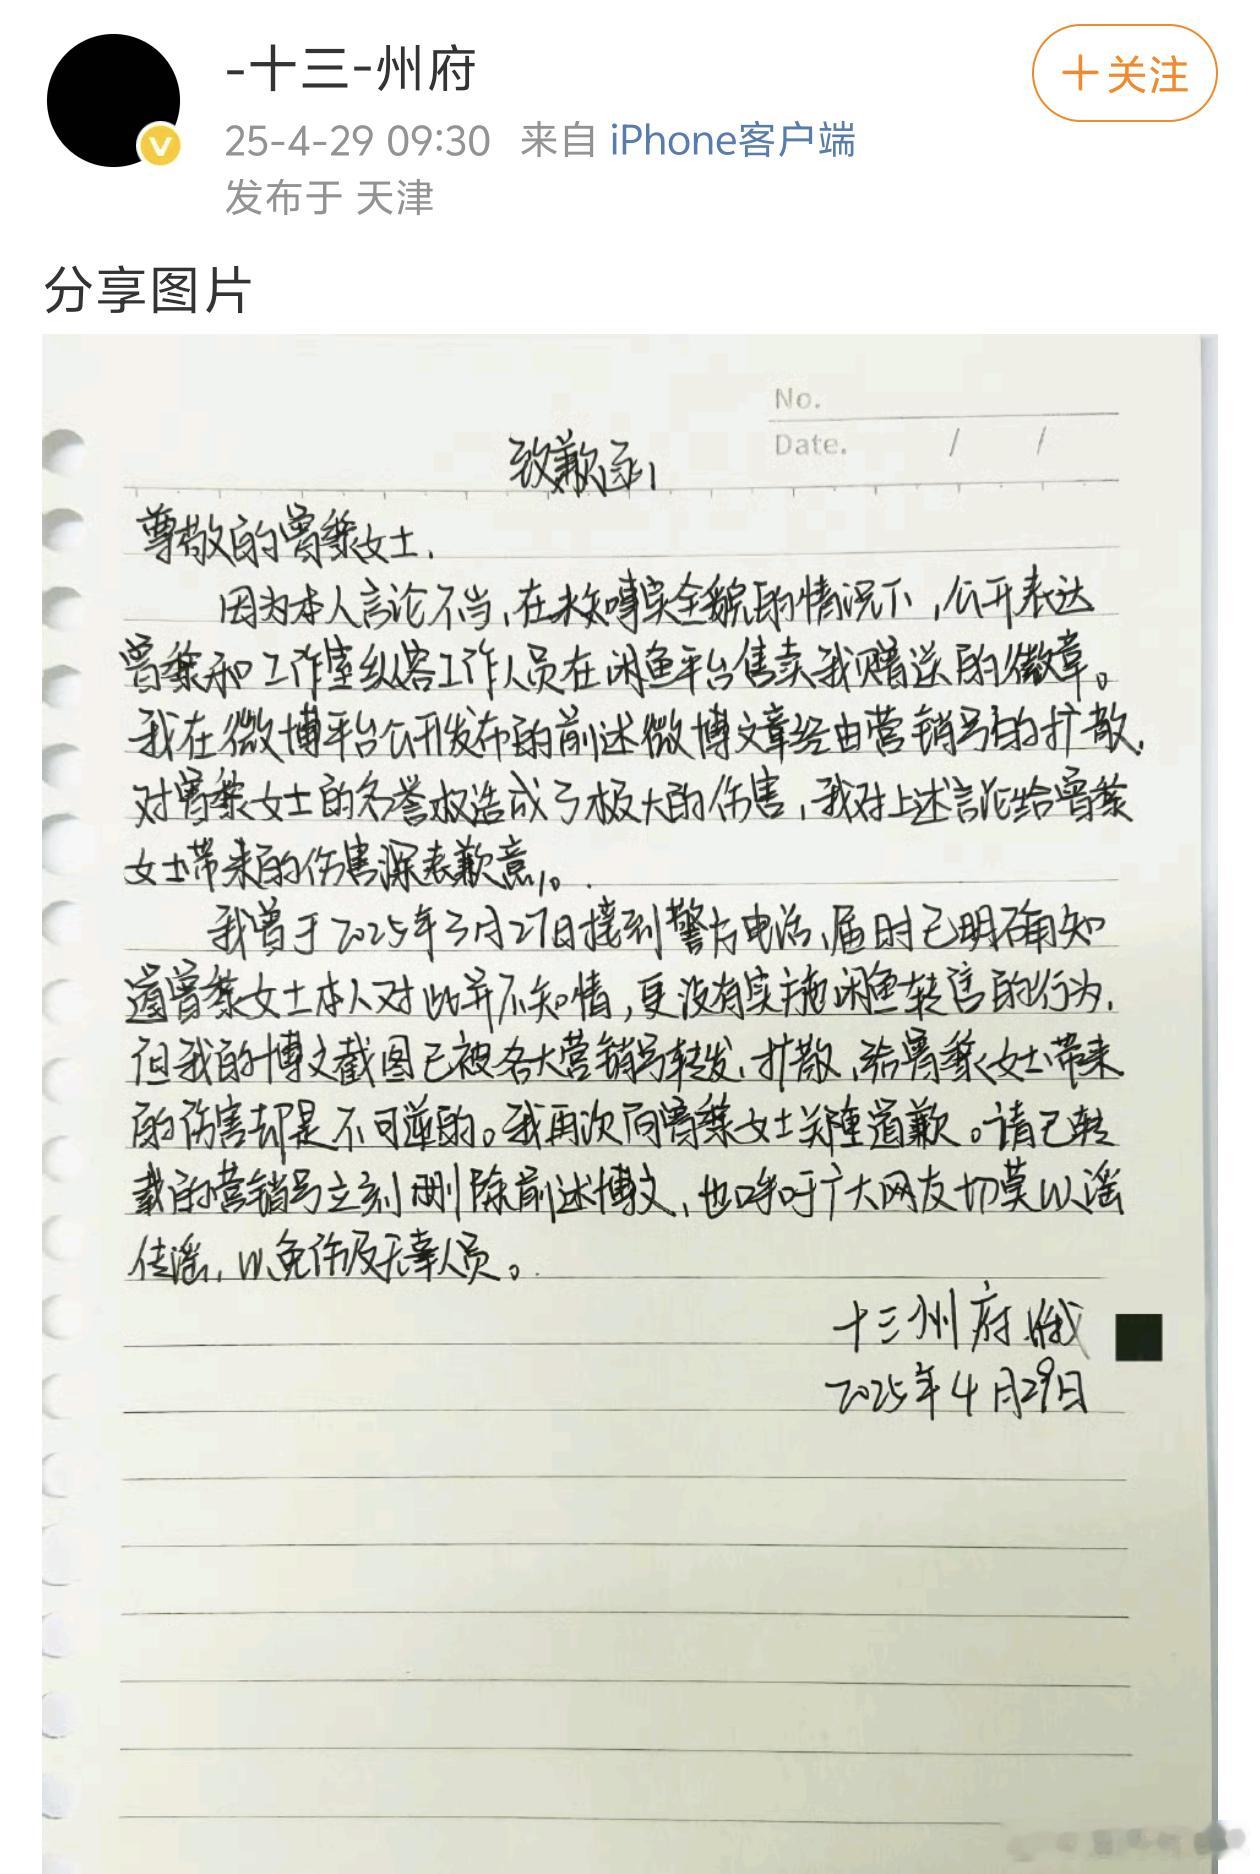 -十三-州府
十关注
25-4-29 09:30 来自 iPhone客户端
发布于 天津
分享图片
No.
Date. / /
致歉函
尊敬的曾黎女士,
因为本人言论不当,在未知事实全貌的情况下,公开表达
曾黎和工作室纵容工作人员在闲鱼平台售卖我赠送的徽章。
我在微博平台公开发布的前述微博文章经由营销号的扩散,
对曾黎女士的名誉权造成了极大的伤害,我对上述言论给曾黎
女士带来的伤害深表歉意。
我曾于2025年3月27日接到警方电话,届时已明确知
道曾黎女士本人对此并不知情,更没有实施闲鱼转售的行为,
但我的博文截图已被各大营销号转发、扩散,给曾黎女士带来
的伤害却是不可逆的。我再次向曾黎女士郑重道歉。请已转
载的营销号立刻删除前述博文,也呼吁广大网友切莫以谣
传谣,以免伤及无辜人员。
十三州府
2025年4月29日